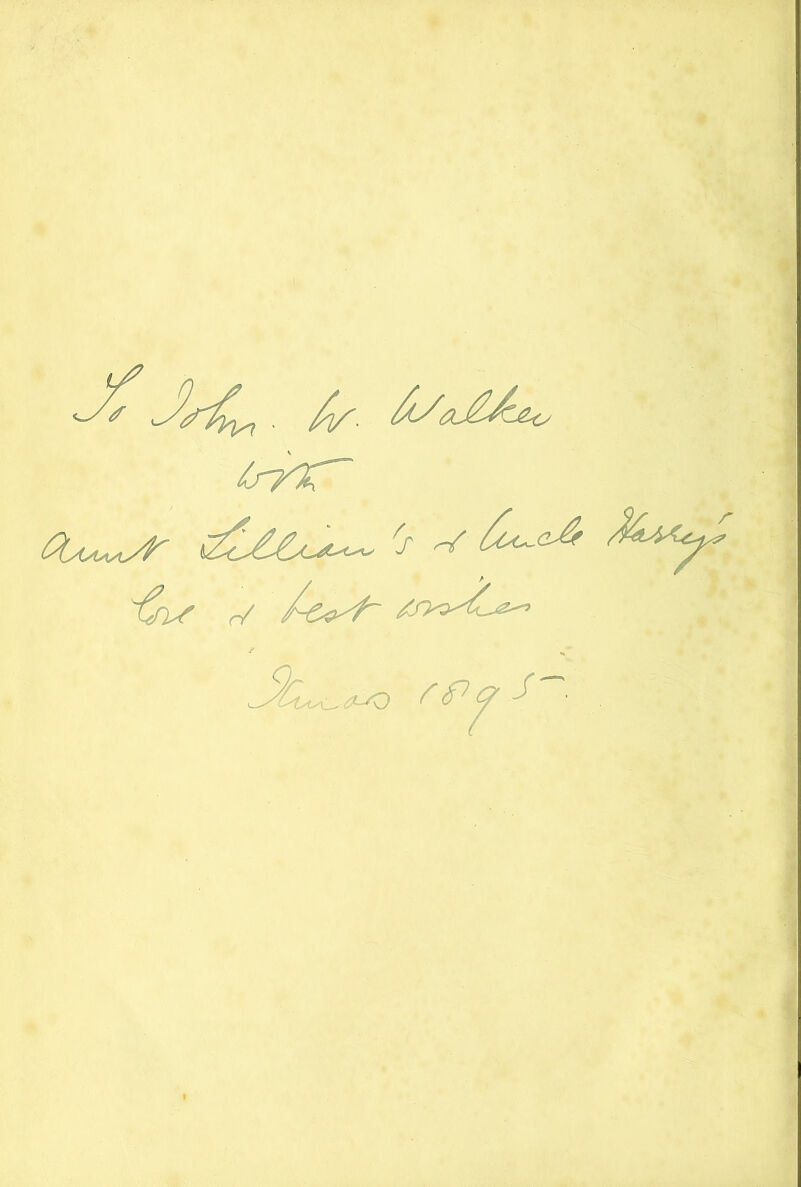 To John. W. Walker
with
Aunt Lillian's & Uncle Harry's
love & best wishes
Xmas 1895.